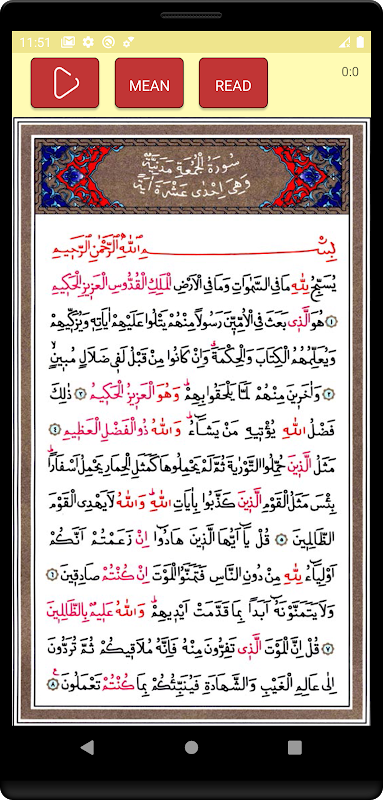 11:51
MEAN
READ
0:0
سُورَةُ الْجُمُعَةِ مَدَنِيَّةٌ
وَهِيَ اِحْدٰى عَشْرَةَ اٰيَةً
بِسْمِ اللّٰهِ الرَّحْمٰنِ الرَّحِيمِ
يُسَبِّحُ لِلّٰهِ مَا فِي السَّمٰوَاتِ وَمَا فِي الْاَرْضِ الْمَلِكِ الْقُدُّوسِ الْعَزِيزِ الْحَكِيمِ
﴿١﴾ هُوَ الَّذِي بَعَثَ فِي الْاُمِّيِّنَ رَسُولاً مِنْهُمْ يَتْلُوا عَلَيْهِمْ اٰيَاتِهِ وَيُزَكِّيهِمْ
وَيُعَلِّمُهُمُ الْكِتَابَ وَالْحِكْمَةَ وَاِنْ كَانُوا مِنْ قَبْلُ لَفِي ضَلَالٍ مُبِينٍ
﴿٢﴾ وَاٰخَرِينَ مِنْهُمْ لَمَّا يَلْحَقُوا بِهِمْ وَهُوَ الْعَزِيزُ الْحَكِيمُ ﴿٣﴾ ذٰلِكَ
فَضْلُ اللّٰهِ يُؤْتِيهِ مَنْ يَشَاءُ وَاللّٰهُ ذُو الْفَضْلِ الْعَظِيمِ ﴿٤﴾
مَثَلُ الَّذِينَ حُمِّلُوا التَّوْرٰيةَ ثُمَّ لَمْ يَحْمِلُوهَا كَمَثَلِ الْحِمَارِ يَحْمِلُ اَسْفَاراً
بِئْسَ مَثَلُ الْقَوْمِ الَّذِينَ كَذَّبُوا بِاٰيَاتِ اللّٰهِ وَاللّٰهُ لَا يَهْدِي الْقَوْمَ
الظَّالِمِينَ ﴿٥﴾ قُلْ يَا اَيُّهَا الَّذِينَ هَادُوا اِنْ زَعَمْتُمْ اَنَّكُمْ
اَوْلِيَاءُ لِلّٰهِ مِنْ دُونِ النَّاسِ فَتَمَنَّوُا الْمَوْتَ اِنْ كُنْتُمْ صَادِقِينَ ﴿٦﴾
وَلَا يَتَمَنَّوْنَهُ اَبَداً بِمَا قَدَّمَتْ اَيْدِيهِمْ وَاللّٰهُ عَلِيمٌ بِالظَّالِمِينَ
﴿٧﴾ قُلْ اِنَّ الْمَوْتَ الَّذِي تَفِرُّونَ مِنْهُ فَاِنَّهُ مُلَاقِيكُمْ ثُمَّ تُرَدُّونَ
اِلٰى عَالِمِ الْغَيْبِ وَالشَّهَادَةِ فَيُنَبِّئُكُمْ بِمَا كُنْتُمْ تَعْمَلُونَ ﴿٨﴾